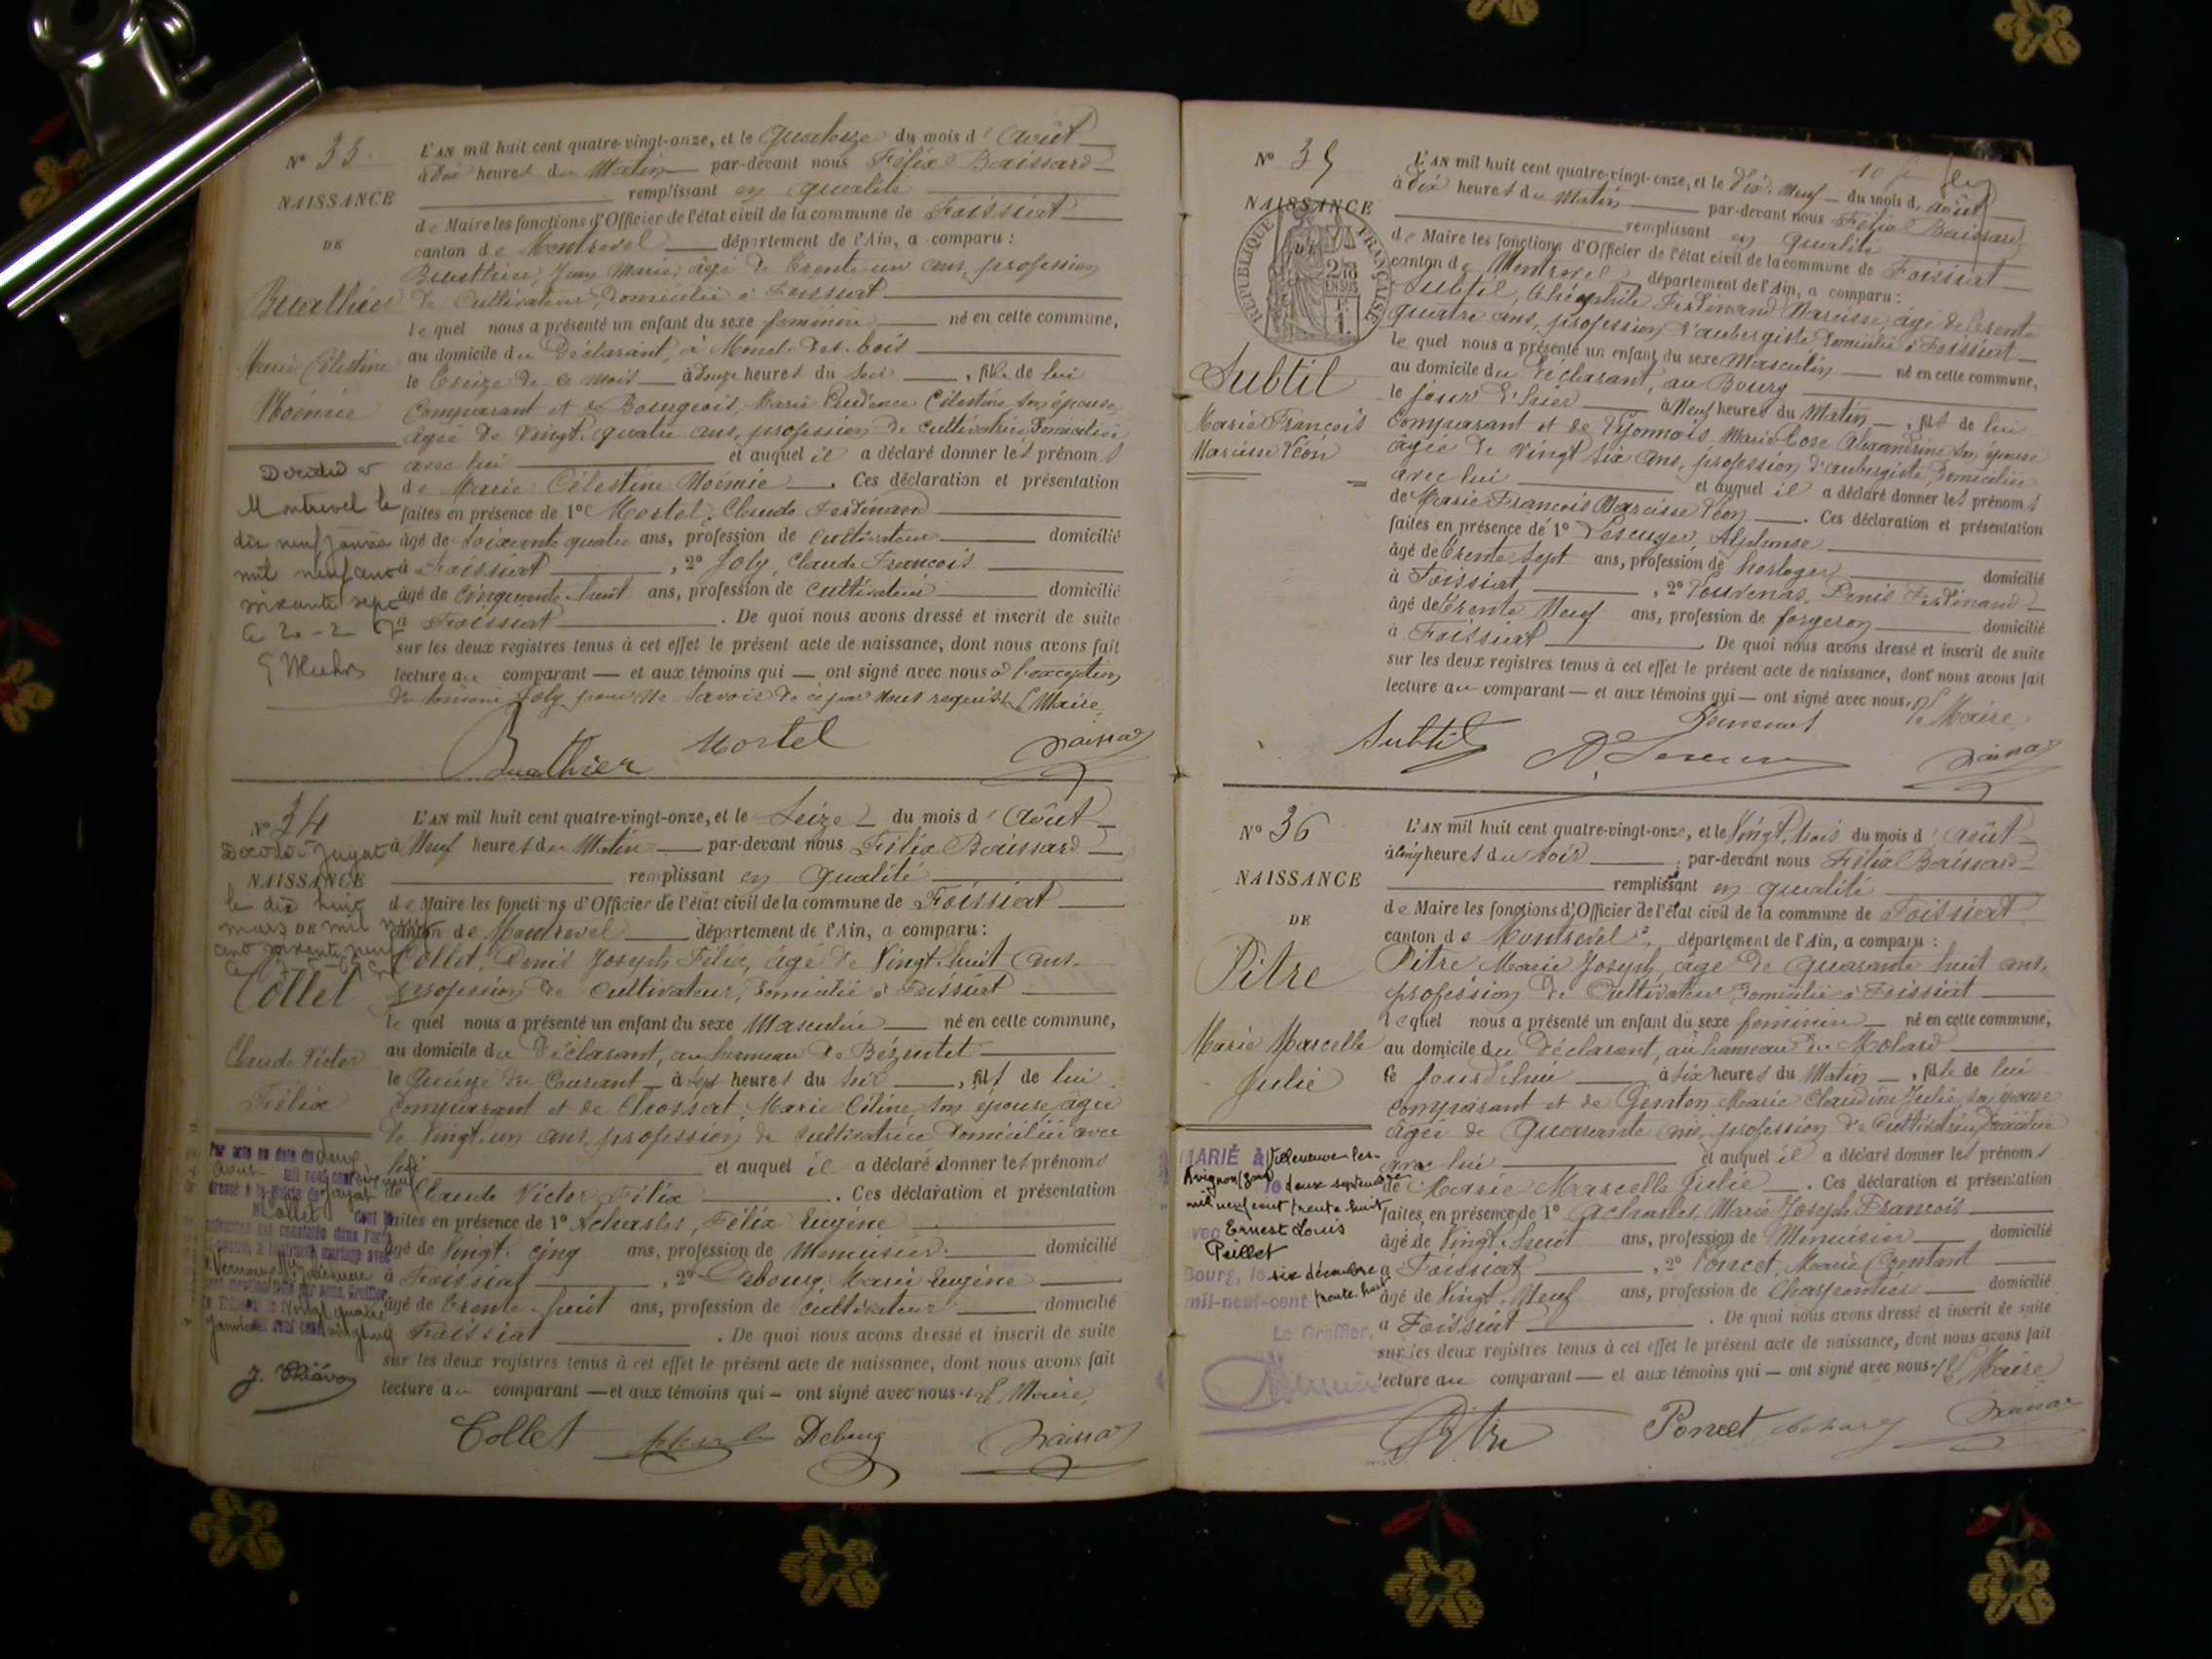 N° 33
NAISSANCE
DE
Buathier
Marie Célestine
Noémie
Décédée à
Montrevel le
dix neuf janvier
mil neuf cent
soixante sept
L'AN mil huit cent quatre-vingt-onze, et le Quatorze du mois d'Août
à Dix heures du Matin par-devant nous Félix Baissard
remplissant en qualité
de Maire les fonctions d'Officier de l'état civil de la commune de Foissiat
canton de Montrevel département de l'Ain, a comparu :
Buathier, Jean Marie, âgé de trente un ans, profession
de Cultivateur, domicilié à Foissiat
lequel nous a présenté un enfant du sexe féminin né en cette commune,
au domicile du Déclarant, à Mont des bois
le treize de ce mois à douze heures du soir, fille de lui
Comparant et de Bourgeois, Marie Prudence Célestine son épouse
âgée de vingt-quatre ans, profession de cultivatrice domiciliée
avec lui et auquel il a déclaré donner les prénoms
de Marie Célestine Noémie. Ces déclaration et présentation
faites en présence de 1° Mortel, Claude Ferdinand
âgé de soixante quatre ans, profession de Cultivateur domicilié
à Foissiat, 2° Joly, Claude François
âgé de cinquante-huit ans, profession de cultivateur domicilié
à Foissiat. De quoi nous avons dressé et inscrit de suite
sur les deux registres tenus à cet effet le présent acte de naissance, dont nous avons fait
lecture au comparant — et aux témoins qui — ont signé avec nous à l'exception
du témoin Joly pour ne savoir de ce par nous requis. Le Maire,
Buathier Mortel Baissard
N° 34
Décédé à Jayat
NAISSANCE
le dix huit
mars DE mil neuf
cent soixante neuf
Collet
Claude Victor
Félix
J. Thiévon
L'AN mil huit cent quatre-vingt-onze, et le Seize du mois d'Août
à Neuf heures du Matin par-devant nous Félix Baissard
remplissant en qualité
de Maire les fonctions d'Officier de l'état civil de la commune de Foissiat
canton de Montrevel département de l'Ain, a comparu :
Collet, Denis Joseph Félix, âgé de Vingt-huit ans,
profession de cultivateur, domicilié à Foissiat
lequel nous a présenté un enfant du sexe Masculin né en cette commune,
au domicile du Déclarant, au hameau de Bézentet
le Quinze du Courant à sept heures du soir, fils de lui
Comparant et de Chossat, Marie Céline, son épouse âgée
de vingt-un ans, profession de cultivatrice domiciliée avec
lui et auquel il a déclaré donner les prénoms
de Claude Victor Félix. Ces déclaration et présentation
faites en présence de 1° Acharles, Félix Eugène
âgé de Vingt-cinq ans, profession de Menuisier domicilié
à Foissiat, 2° Debourg, Marie Eugène
âgé de trente-huit ans, profession de cultivateur domicilié
Foissiat. De quoi nous avons dressé et inscrit de suite
sur les deux registres tenus à cet effet le présent acte de naissance, dont nous avons fait
lecture au comparant — et aux témoins qui — ont signé avec nous. Le Maire,
Collet Debourg Baissard
N° 35
NAISSANCE
RÉPUBLIQUE FRANÇAISE
Subtil
Marie François
Narcisse Léon
L'AN mil huit cent quatre-vingt-onze, et le Dix-Neuf du mois d'août
à Dix heures du Matin par-devant nous Félix Baissard
remplissant en qualité
de Maire les fonctions d'Officier de l'état civil de la commune de Foissiat
canton de Montrevel département de l'Ain, a comparu :
Subtil, Théophile Ferdinand Narcisse, âgé de trente
quatre ans, profession d'aubergiste domicilié à Foissiat
lequel nous a présenté un enfant du sexe Masculin né en cette commune,
au domicile du Déclarant, au Bourg
le jour d'hier à Neuf heures du Matin, fils de lui
Comparant et de Pyonnois, Marie Rose Alexandrine son épouse
âgée de vingt six ans, profession d'aubergiste, domiciliée
avec lui et auquel il a déclaré donner les prénoms
de Marie François Narcisse Léon. Ces déclaration et présentation
faites en présence de 1° Lescuyer, Alphonse
âgé de trente sept ans, profession de horloger domicilié
à Foissiat, 2° Denis Ferdinand
âgé de trente Neuf ans, profession de forgeron domicilié
à Foissiat. De quoi nous avons dressé et inscrit de suite
sur les deux registres tenus à cet effet le présent acte de naissance, dont nous avons fait
lecture au comparant — et aux témoins qui — ont signé avec nous. Le Maire
Subtil Baissard
N° 36
NAISSANCE
DE
Pitre
Marie Marcelle
Julie
MARIÉ à Villeneuve-les-
Avignon (Gard) le deux septembre
mil neuf cent trente-huit
vec Ernest Louis
Peillet
Bourg, le six décembre
mil-neuf-cent trente huit
Le Greffier,
L'AN mil huit cent quatre-vingt-onze, et le Vingt-trois du mois d'août
à cinq heures du soir, par-devant nous Félix Baissard
remplissant en qualité
de Maire les fonctions d'Officier de l'état civil de la commune de Foissiat
canton de Montrevel, département de l'Ain, a comparu :
Pitre Marie Joseph, âgé de quarante huit ans,
profession de Cultivateur domicilié à Foissiat
lequel nous a présenté un enfant du sexe féminin né en cette commune,
au domicile du Déclarant, au hameau du Molard
le jour d'hui à six heures du Matin, fille de lui
comparant et de Genton Marie Claudine Julie, son épouse
âgée de Quarante ans, profession de Cultivatrice, domiciliée
avec lui et auquel il a déclaré donner les prénoms
de Marie Marcelle Julie. Ces déclaration et présentation
faites en présence de 1° Acharles, Marie Joseph François
âgé de Vingt-huit ans, profession de Menuisier domicilié
à Foissiat, 2° Poncet, Marie Constant
âgé de Vingt-Neuf ans, profession de Charpentier domicilié
à Foissiat. De quoi nous avons dressé et inscrit de suite
sur les deux registres tenus à cet effet le présent acte de naissance, dont nous avons fait
lecture au comparant — et aux témoins qui — ont signé avec nous. Le Maire
Pitre Poncet Baissard